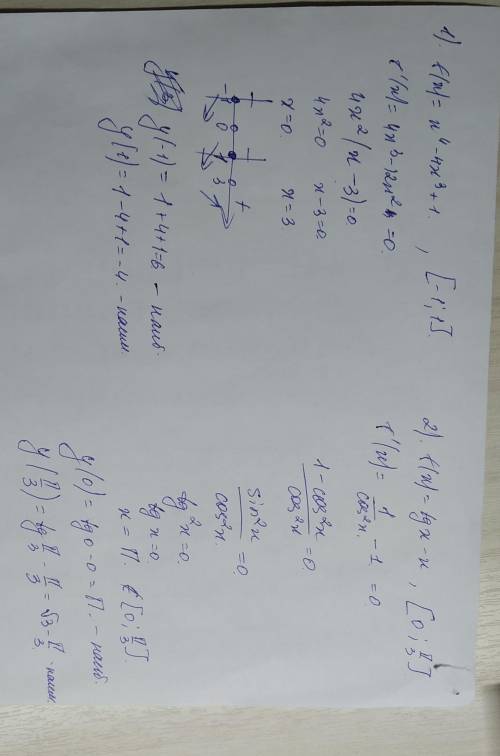 1). f(x) = x⁴-4x³+1. , [-1;1].
f'(x) = 4x³-12x² = 0.
4x²(x-3)=0.
4x²=0 x-3=0
x=0. x=3
- - - +
-1 0 1 3
y(-1) = 1+4+1=6 - наиб.
y(1) = 1-4+1=-4. - наим.
2). f(x) = tgx-x , [0; π/3]
f'(x) = 1/cos²x - 1 = 0.
1-cos²x/cos²x = 0.
sin²x/cos²x = 0.
tg²x=0.
tgx=0.
x = π. ∈ [0; π/3].
y(0) = tg0-0 = π. - наиб.
y(π/3) = tg π/3 - π/3 = √3 - π/3 - наим.